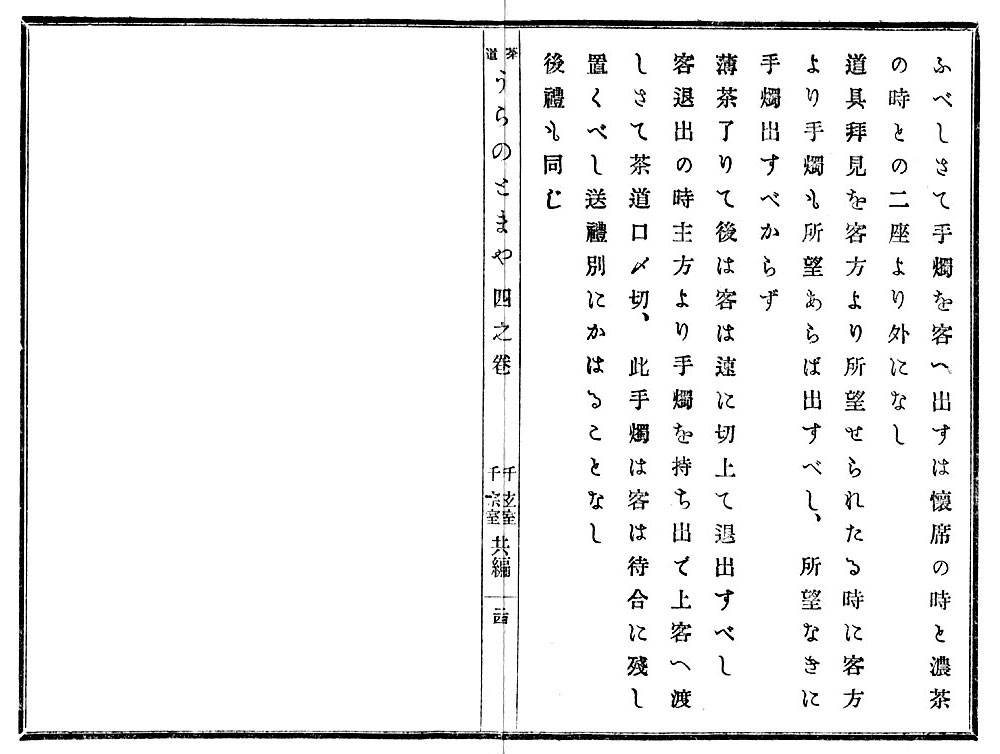 ふべしさて手燭を客へ出すは懷席の時と濃茶
の時との二座より外になし
道具拜見を客方より所望せられたる時に客方
より手燭も所望あらば出すべし、所望なきに
手燭出すべからず
薄茶了りて後は客は速に切上て退出すべし
客退出の時主方より手燭を持ち出で上客へ渡
しさて茶道口〆切、此手燭は客は待合に殘し
置くべし送禮別にかはることなし
後禮も同じ
茶道 うらのとまや 四之卷 千玄室 千宗室 共編